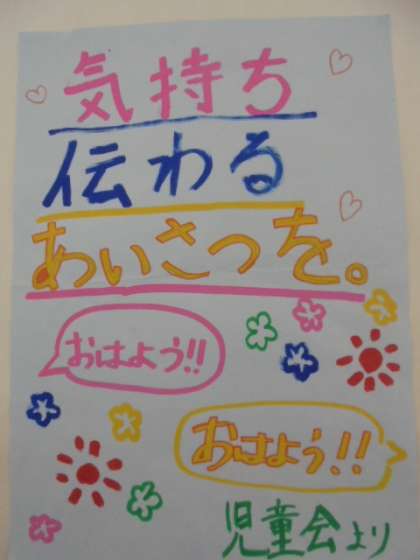 気持ち
伝わる
あいさつを。
おはよう!!
おはよう!!
児童会より